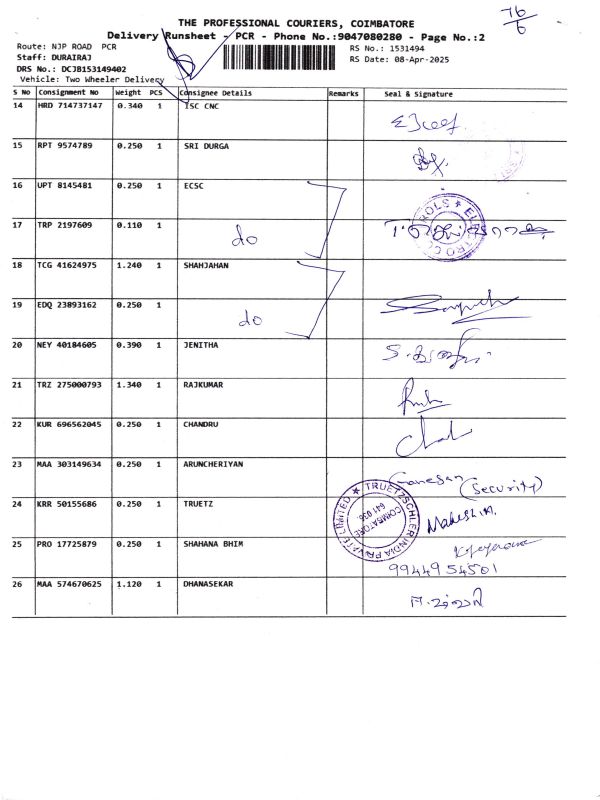 76
6
THE PROFESSIONAL COURIERS, COIMBATORE
Delivery Runsheet - PCR - Phone No.:9047080280 - Page No.:2
Route: NJP ROAD PCR
RS No.: 1531494
Staff: DURAIRAJ
RS Date: 08-Apr-2025
DRS No.: DCJB153149402
Vehicle: Two Wheeler Delivery
S No Consignment No Weight PCS Consignee Details Remarks Seal & Signature
14 HRD 714737147 0.340 1 ISC CNC
15 RPT 9574789 0.250 1 SRI DURGA
16 UPT 8145481 0.250 1 ECSC
17 TRP 2197609 0.110 1 do
18 TCG 41624975 1.240 1 SHAHJAHAN
19 EDQ 23893162 0.250 1 do
20 NEY 40184605 0.390 1 JENITHA
21 TRZ 275000793 1.340 1 RAJKUMAR
22 KUR 696562045 0.250 1 CHANDRU
23 MAA 303149634 0.250 1 ARUNCHERIYAN Ganesan (Security)
24 KRR 50155686 0.250 1 TRUETZ TRUETZSCHLER INDIA PRIVATE LIMITED COIMBATORE 641 036. Mahesh.M.
25 PRO 17725879 0.250 1 SHAHANA BHIM
9944954501
26 MAA 574670625 1.120 1 DHANASEKAR